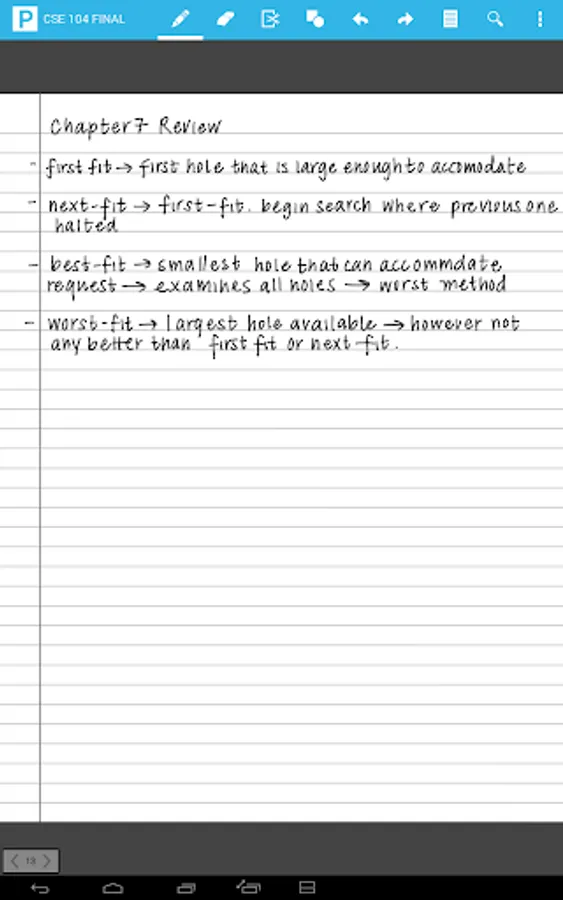 P CSE 104 FINAL
Chapter 7 Review
- first fit → first hole that is large enough to accomodate
- next-fit → first-fit. begin search where previous one
halted
- best-fit → smallest hole that can accommdate
request → examines all holes → worst method
- worst-fit → largest hole available → however not
any better than first fit or next-fit.
13